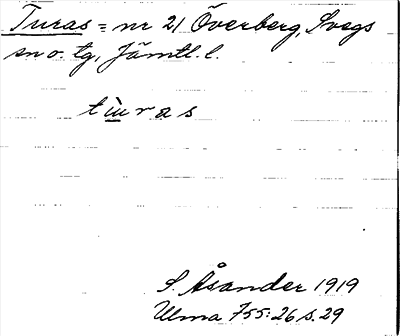 Turas = nr 21 Överberg, Svegs
sn o. tg, Jämtl. l.
tùras
S. Åsander 1919
Ulma 755:26 s. 29